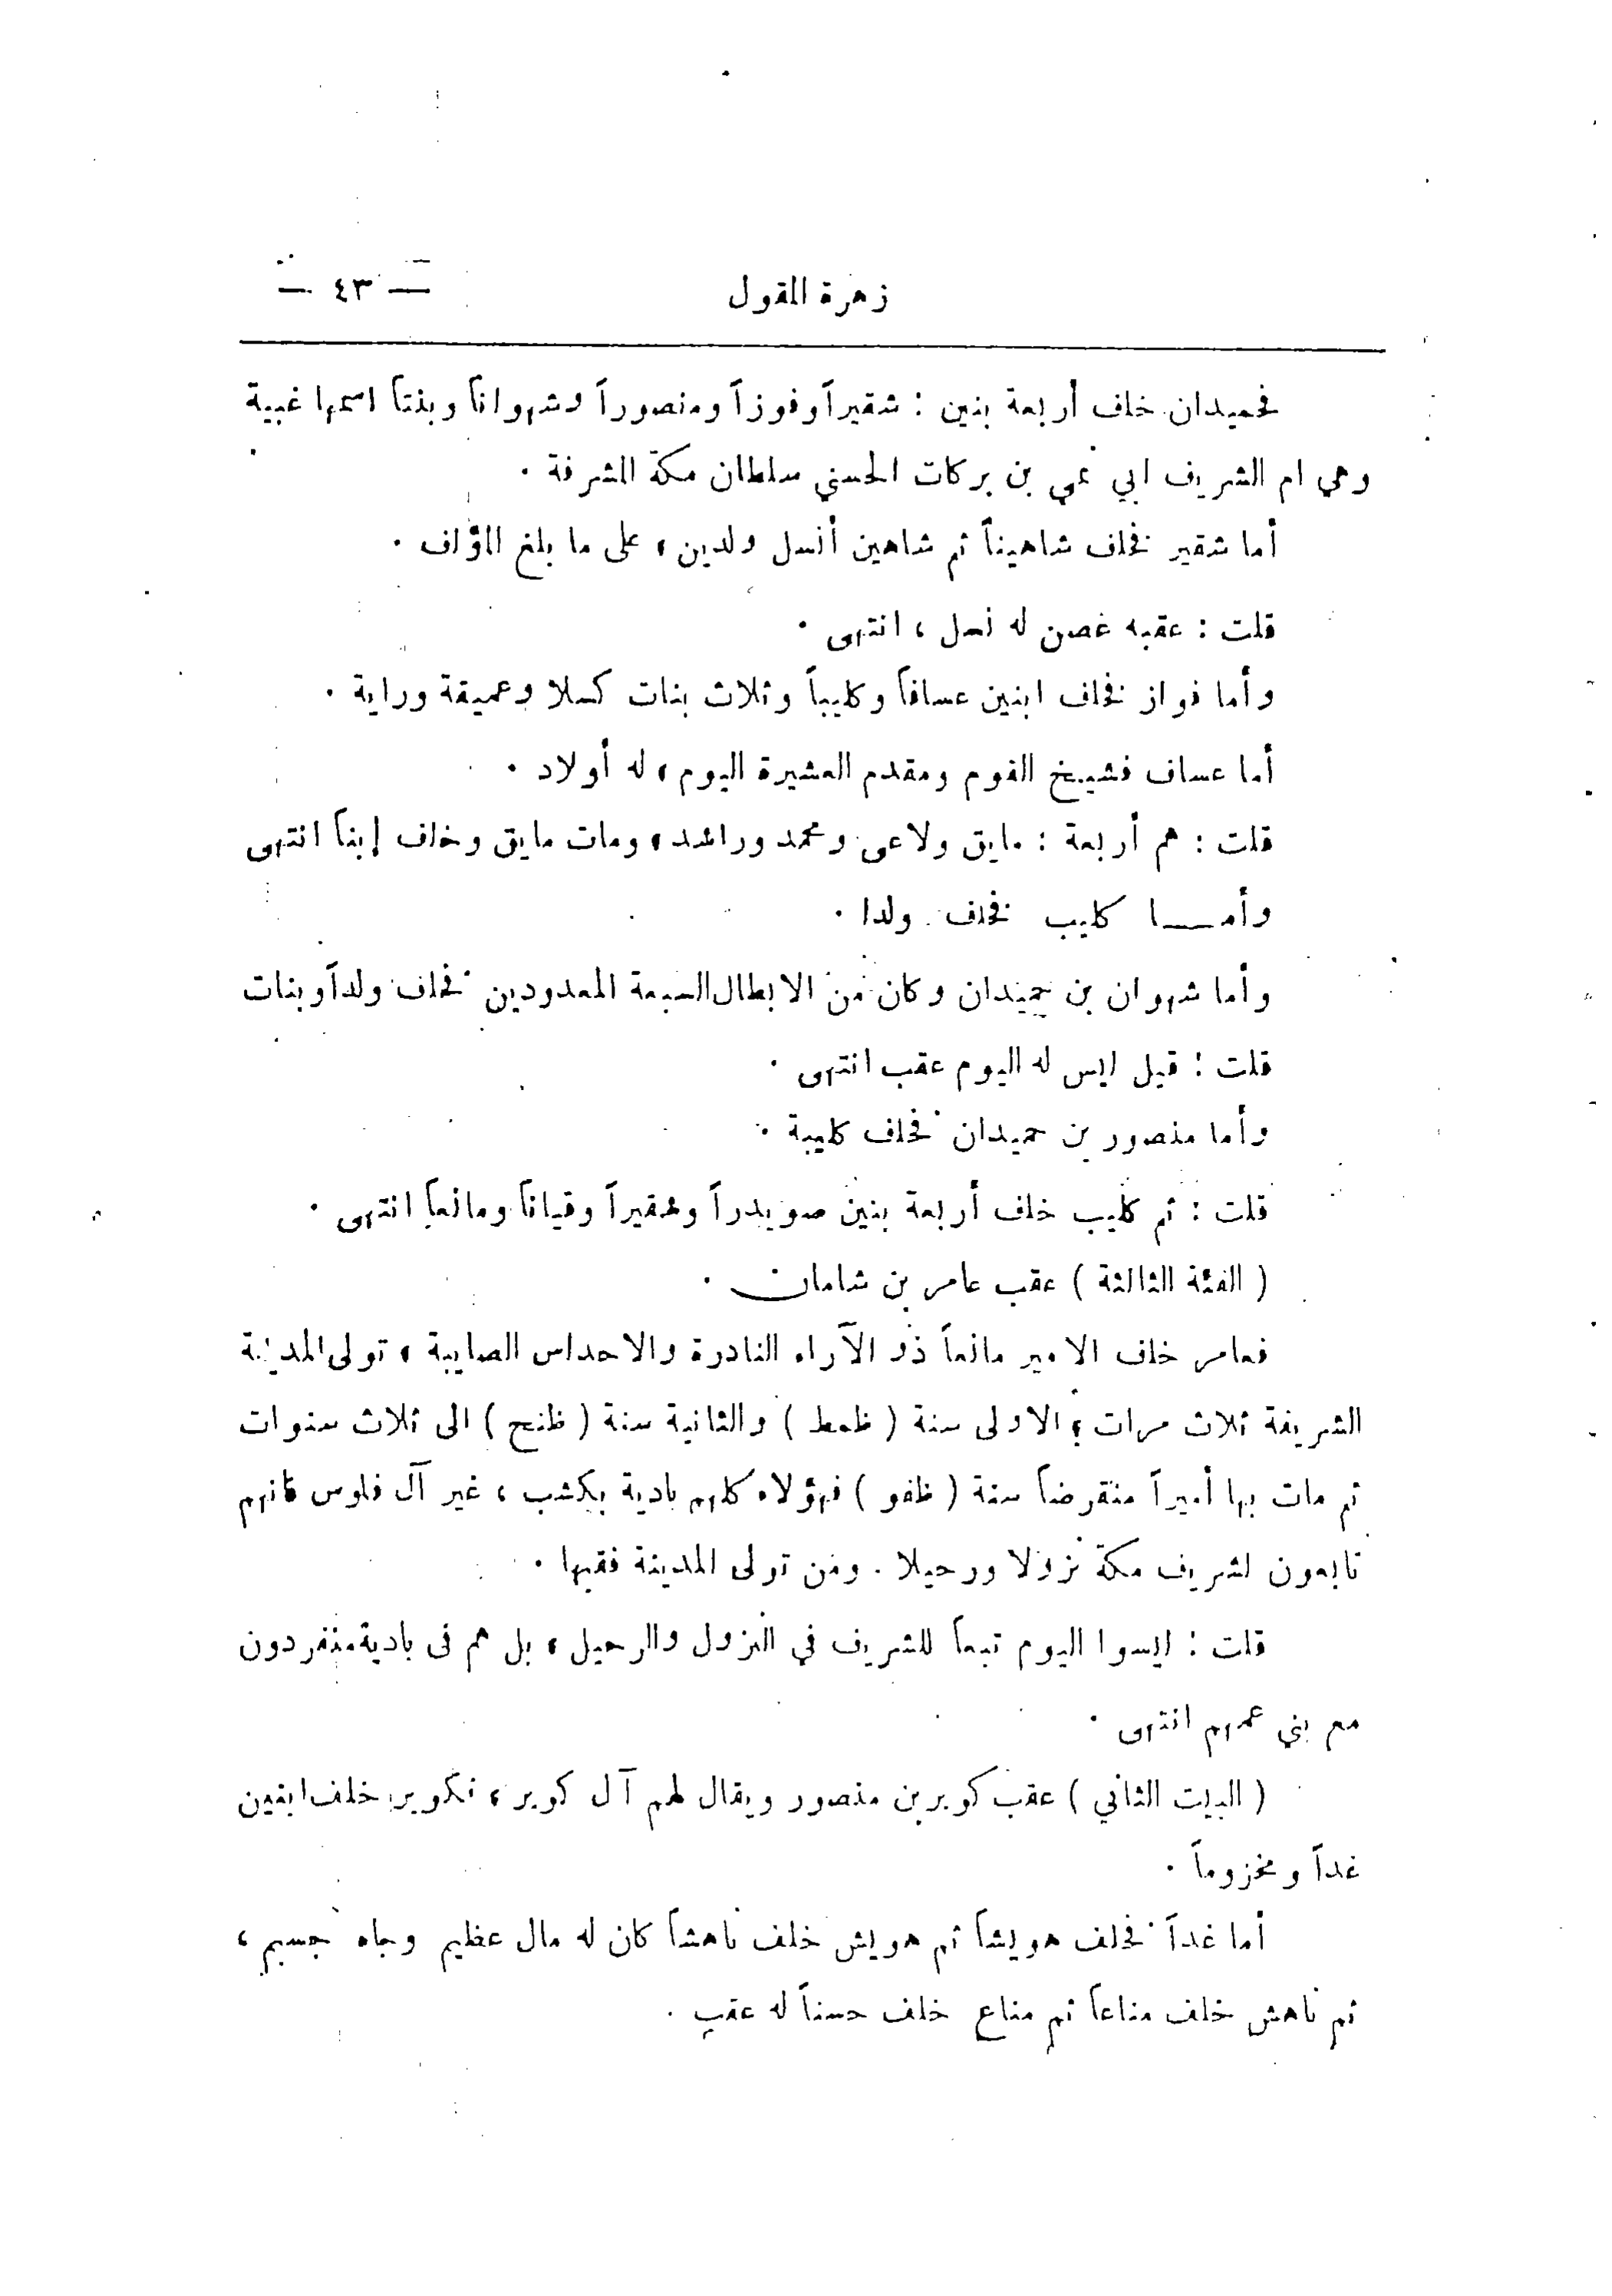 زهرة المقول — ٤٣ —
فحميدان خلف أربعة بنين : شقيراً وفوزاً ومنصوراً وشهواناً وبنتاً اسمها غبية
وهي ام الشريف ابي نمي بن بركات الحسني سلطان مكة المشرفة .
أما شقير فخلف شاهيناً ثم شاهين أنسل ولدين ، على ما بلغ المؤلف .
قلت : عقبه غصن له نسل ، انتهى .
وأما فواز فخلف ابنين عسافاً وكليباً وثلاث بنات كسلا وعميقة وراية .
أما عساف فشيخ القوم ومقدم العشيرة اليوم ، له أولاد .
قلت : هم أربعة : مايق ولاعى ومحمد وراشد ، ومات مايق وخلف إبناً انتهى
وأمـــا كليب فخلف ولدا .
وأما شهوان بن حميدان وكان من الابطال السبعة المعدودين فخلف ولداً وبنات
قلت : قيل ليس له اليوم عقب انتهى .
وأما منصور بن حميدان فخلف كليبة .
قلت : ثم كليب خلف أربعة بنين صويدراً وشقيراً وقياناً ومانعاً انتهى .
( الفئة الثالثة ) عقب عامر بن شامان .
فعامر خلف الامير مانعاً ذو الآراء النادرة والاحداس الصايبة ، تولى المدينة
الشريفة ثلاث مرات ؛ الاولى سنة ( ظمط ) والثانية سنة ( ظنح ) الى ثلاث سنوات
ثم مات بها أميراً منقرضاً سنة ( ظفو ) فهؤلاء كلهم بادية بكشب ، غير آل فلوس فانهم
تابعون لشريف مكة نزولا ورحيلا . ومن تولى المدينة فقبها .
قلت : ليسوا اليوم تبعاً للشريف في النزول والرحيل ، بل هم فى بادية منفردون
مع بني عمهم انتهى .
( البيت الثاني ) عقب كوير بن منصور ويقال لهم آل كوير ، فكوير خلف ابنين
غداً ومخزوماً .
أما غداً فخلف هويشاً ثم هويش خلف ناهشاً كان له مال عظيم وجاه جسيم ،
ثم ناهش خلف مناعاً ثم مناع خلف حسناً له عقب .